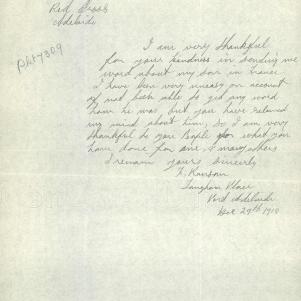 Red Cross
Adelaide
Pkt 7309
I am very thankful
for your kindness in sending me
word about my son in France
I have been very uneasy on account
of not been able to get any word
how he was, but you have relieved
my mind about him, so I am very
thankful to you People for what you
have done for me, & many others
I remain yours sincerely
Ransom
Place
Port Adelaide
29th 1916